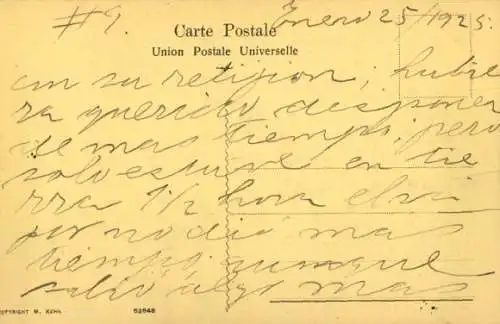 #9.
Enero 25/1925.
Carte Postale
Union Postale Universelle
con su religion; hubie
ra querido disponer
de mas tiempo, pero
solo estuve en tie
rra 1/2 hora el
por no dió mas
tiempo, aunque
salió algo mas
COPYRIGHT M. KUHN
52648